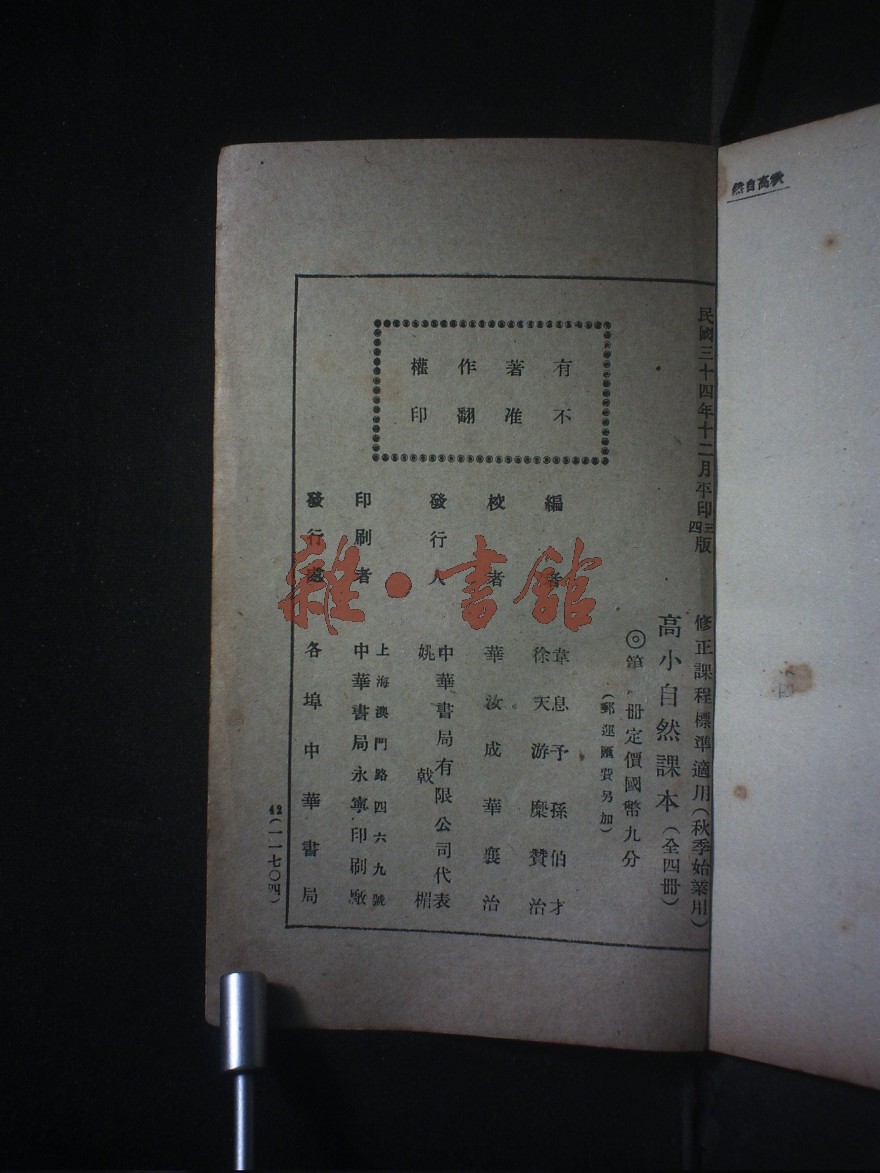 然自高秋
民國三十四年十二月平印三四版
修正課程標準適用(秋季始業用)
高小自然課本(全四冊)
◎第 冊定價國幣九分
(郵運匯費另加)
有著作權
不准翻印
編者
韋息予 孫伯才
徐天游 糜贊治
校者
華汝成 華襄治
發行人
中華書局有限公司代表
姚戟楣
印刷者
上海澳門路四六九號
中華書局永寧印刷廠
發行處
各埠中華書局
42(一一七〇四)
雜·書館